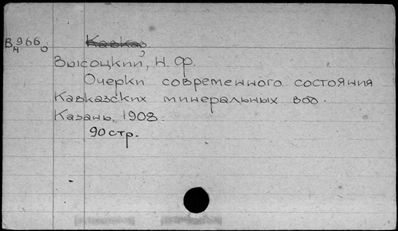 В 966
н о
Кавказ
Высоцкий, Н. Ф.
Очерки современного состояния
Кавказских минеральных вод.
Казань, 1908.
90 стр.